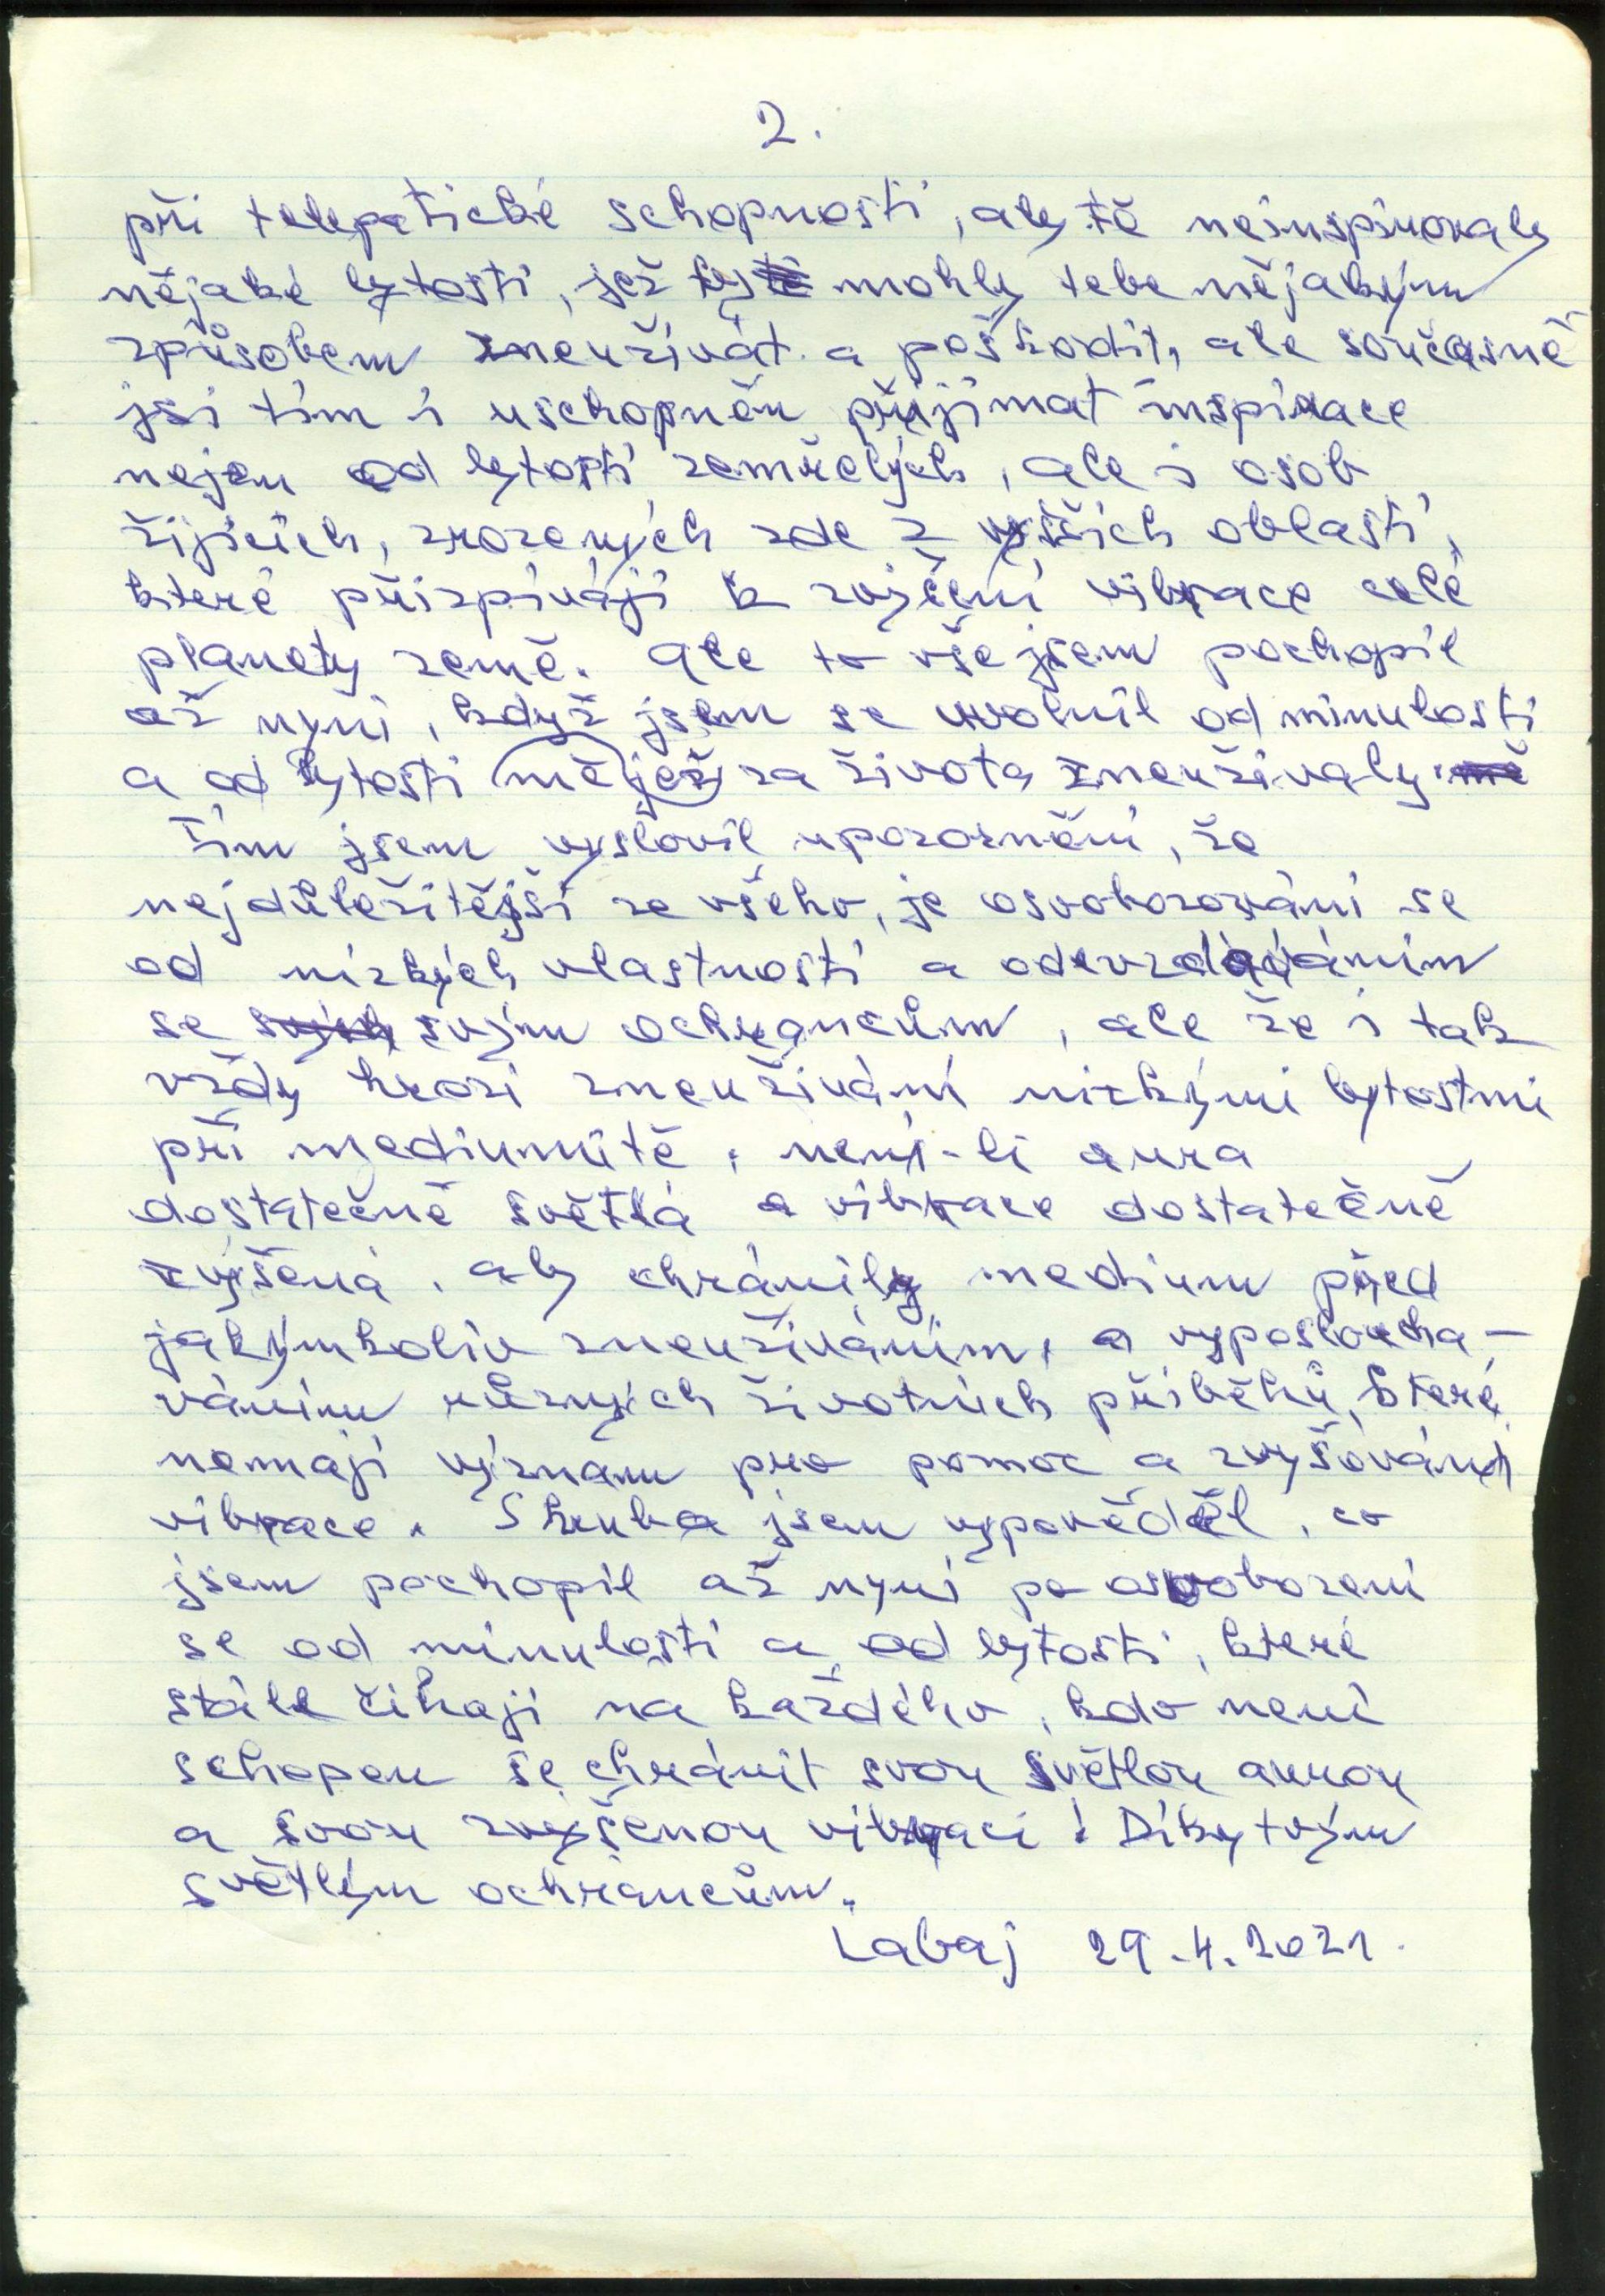 2.
při telepatické schopnosti, aby tě neinspirovaly
nějaké bytosti, jež by tě mohly tebe nějakým
způsobem zneužívat a poškodit, ale současně
jsi tím i uschopněn přijímat inspirace
nejen od bytostí zemřelých, ale i osob
žijících, zrozených zde z vyšších oblastí,
které přizpívají k zvýšení vibrace celé
planety země. Ale to vše jsem pochopil
až nyní, když jsem se uvolnil od minulosti
a od bytostí mě jež za života zneužívaly mě
Tím jsem vyslovil upozornění, že
nejdůležitější ze všeho, je osvobozování se
od nízkých vlastností a odevzdáváním
se svým ochráncům, ale že i tak
vždy hrozí zneužívání nízkými bytostmi
při mediumitě, není-li aura
dostatečně světlá a vibrace dostatečně
zvýšená, aby chránily medium před
jakýmkoliv zneužíváním, a vyposloucha-
váním různých životních příběhů, které
nemají význam pro pomoc a zvyšování
vibrace. Zkrátka jsem vypověděl, co
jsem pochopil až nyní po osvobození
se od minulosti a od bytostí, které
stále číhají na každého, kdo není
schopen se chránit svou světlou aurou
a svou zvýšenou vibrací! Díky tvým
světlým ochráncům.
Labaj 29.4.2021.